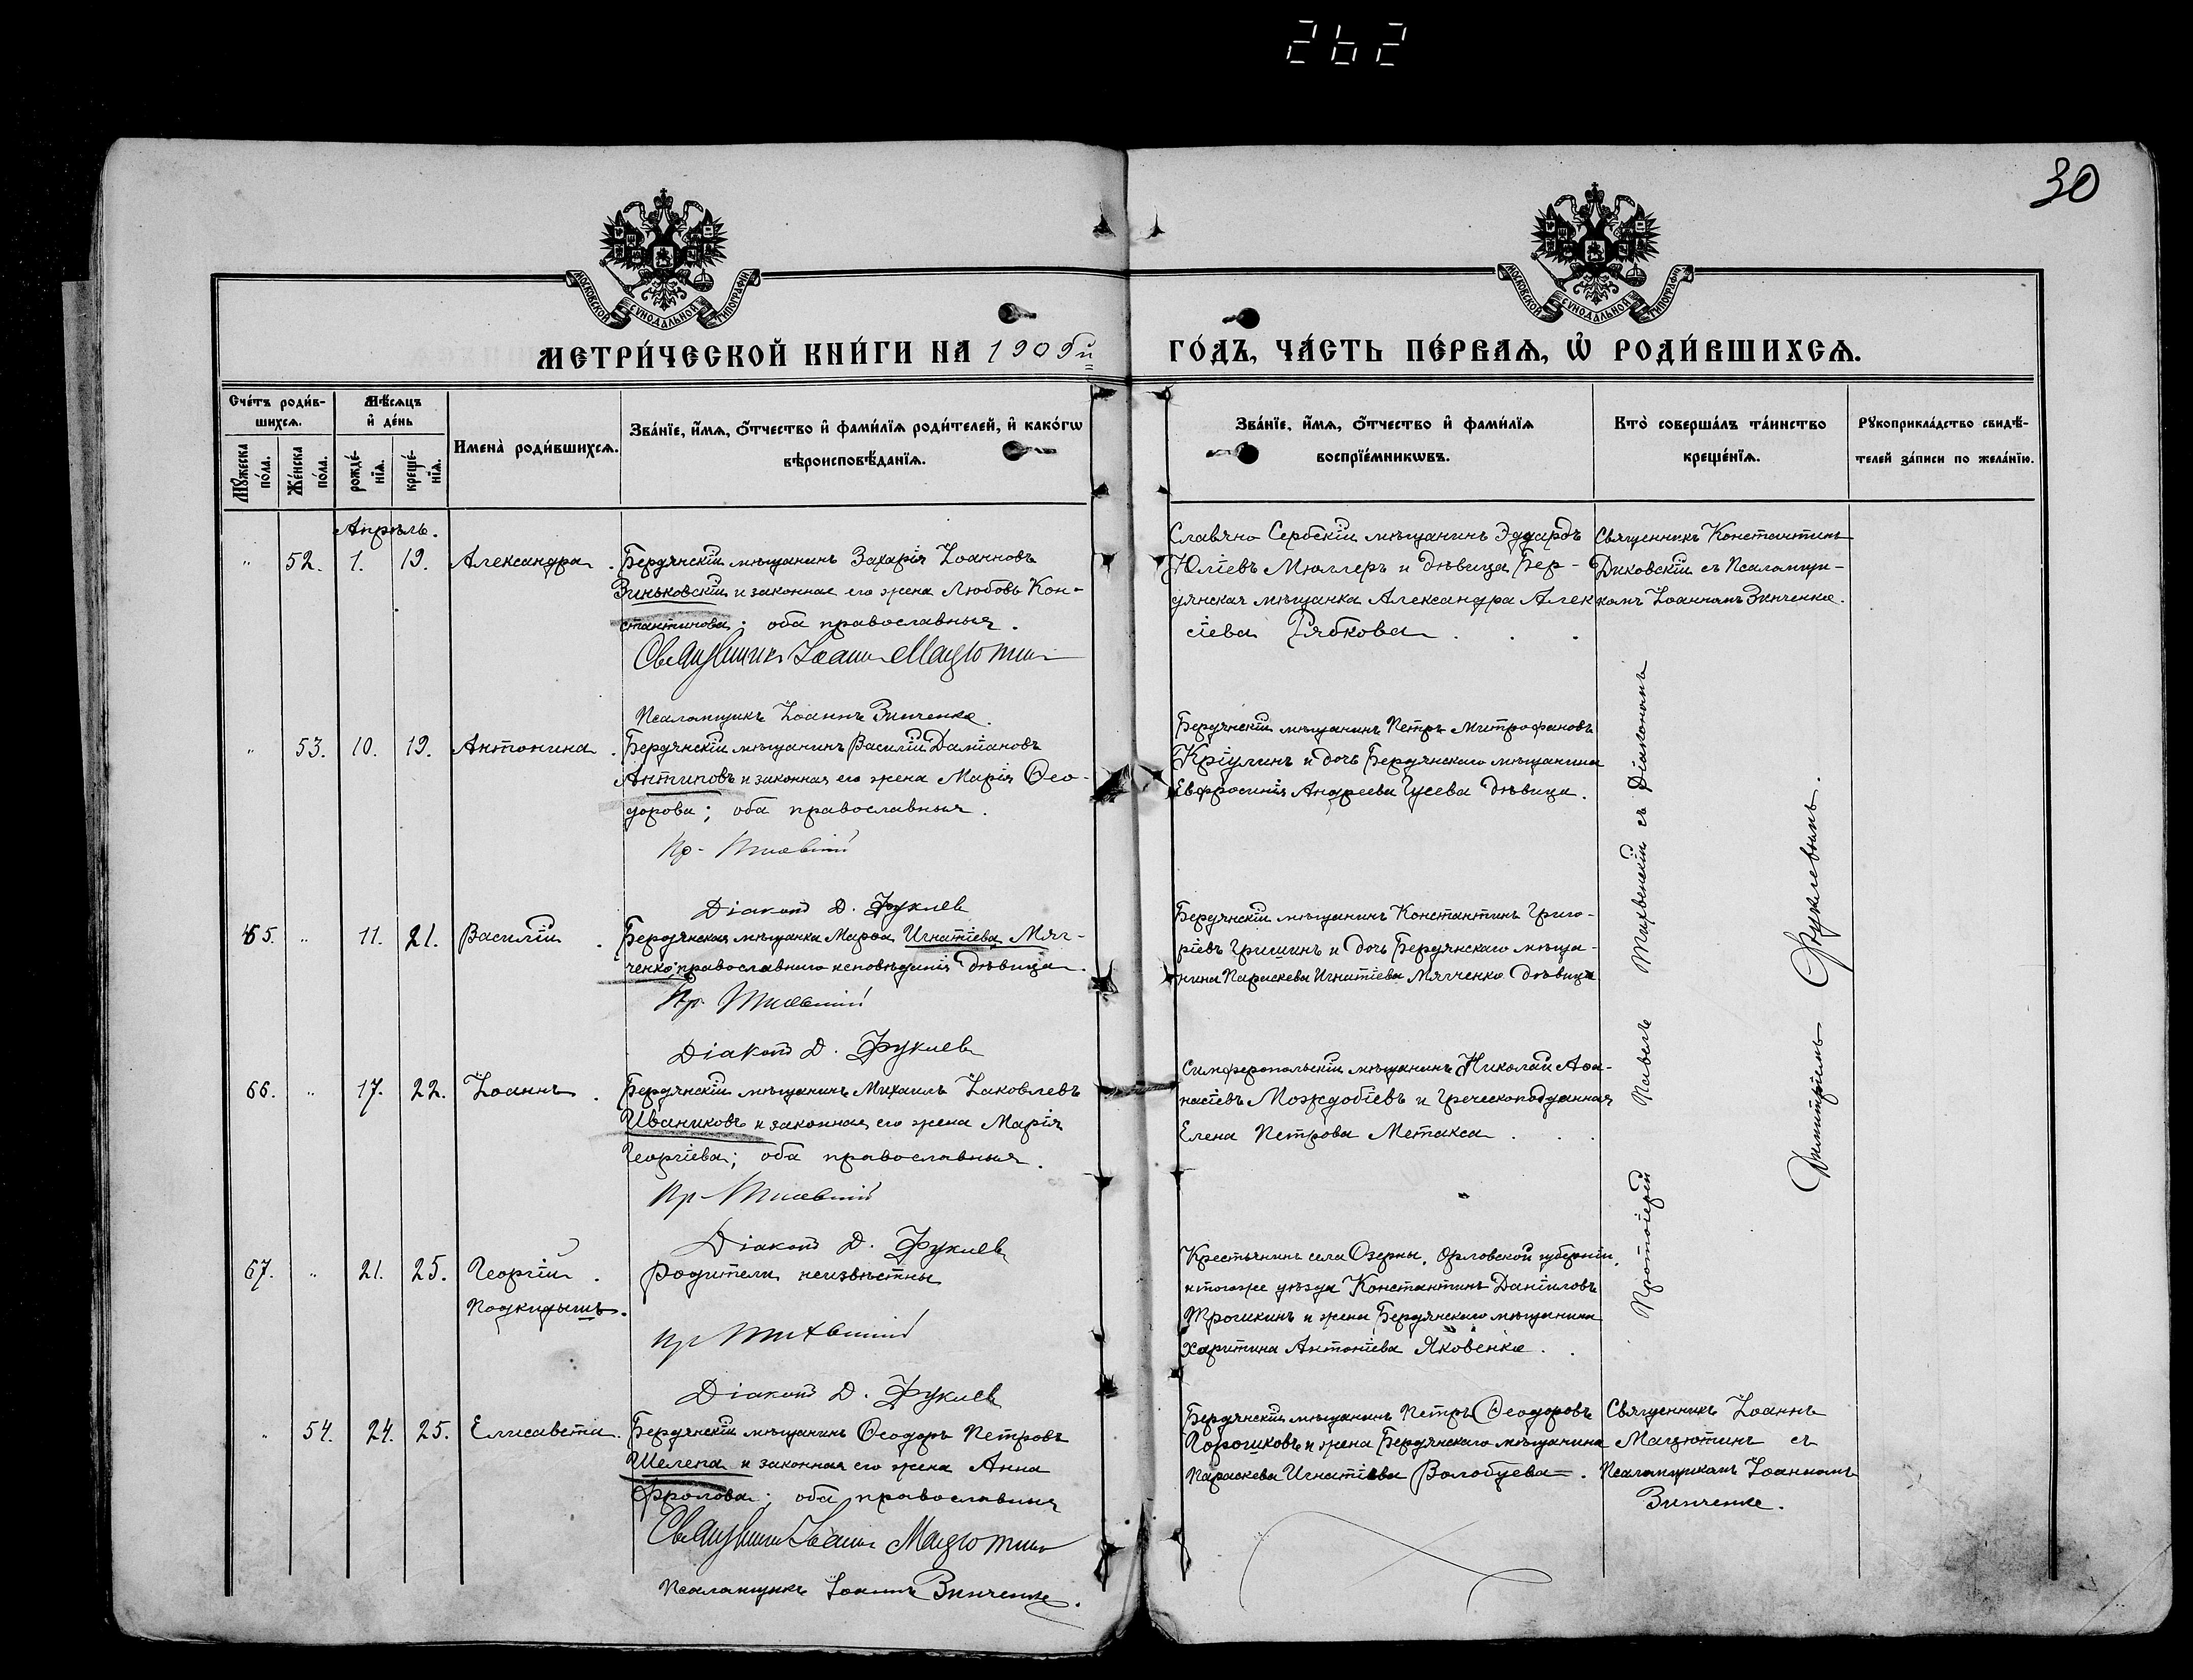 262
30
МОСКОВСКОЙ СѴНОДАЛЬНОЙ ТИПОГРАФІИ
МОСКОВСКОЙ СѴНОДАЛЬНОЙ ТИПОГРАФІИ
МЕТРИ́ЧЕСКОЙ КНИ́ГИ НА 190 й ГО́ДЪ, ЧА́СТЬ ПЕ́РВАѦ, Ѡ҆ РОДИ́ВШИХСѦ.
Сче́тъ роди́в-
шихсѧ.
Мꙋ́жеска по́ла.
Же́нска по́ла.
Мѣ́сѧцъ
и҆ де́нь
рожде́-
нїѧ.
креще́-
нїѧ.
Имена̀ роди́вшихсѧ.
Зва́нїе, и҆́мѧ, ѻ҆́тчество и҆ фами́лїѧ роди́телей, и҆ како́гѡ
вѣроисповѣ́данїѧ.
Зва́нїе, и҆́мѧ, ѻ҆́тчество и҆ фами́лїѧ
воспрїе́мникѡвъ.
Кто̀ соверша́лъ та́инство
креще́нїѧ.
Рꙋкоприкла́дство свидѣ́-
телей за́писи по жела́нїю.
Апрѣль.
" 52. 1. 19. Александра.
Бердянскій мѣщанинъ Захарія Іоанновъ
Зиньковскій и законная его жена Любовь Кон-
стантинова; оба православныя.
Священникъ Іоаннъ Мацютинъ
Псаломщикъ Іоаннъ Зинченко.
Славяно Сербскій мѣщанинъ Эдуардъ
Юліевъ Мюллеръ и дѣвица Бер-
дянская мѣщанка Александра Алек
сіева Рябкова
Священникъ Константинъ
Диковскій съ Псаломщи-
комъ Іоанномъ Зинченко.
" 53. 10. 19. Антонина.
Бердянскій мѣщанинъ Василій Даміановъ
Антиповъ и законная его жена Марія Ѳео-
дорова; оба православныя.
Пр.
Діаконъ Д.
Бердянскій мѣщанинъ Петръ Митрофановъ
Кріулинъ и дочь Бердянскаго мѣщанина
Евфросинія Андреева Гусева дѣвица.
65. " 11. 21. Василій.
Бердянская мѣщанка Марѳа Игнатіева Мяг-
ченко православнаго исповѣданія дѣвица.
Пр.
Діаконъ Д.
Бердянскій мѣщанинъ Константинъ Григо-
ріевъ Гришинъ и дочь Бердянскаго мѣща-
нина Параскева Игнатіева Мягченко дѣвица
66. " 17. 22. Іоаннъ.
Бердянскій мѣщанинъ Михаилъ Іаковлевъ
Иваниковъ и законная его жена Марія
Георгіева; оба православныя.
Пр.
Діаконъ Д.
Симферопольскій мѣщанинъ Николай Аѳа-
насіевъ Можд и Греческоподданная
Елена Петрова Метакса
67. " 21. 25. Георгій.
Подкидышъ.
родители неизвѣстны
Пр
Діаконъ Д.
Крестьянинъ села Озерны, Орловской губерніи,
и тогоже уѣзда Константинъ Даніиловъ
и жена Бердянскаго мѣщанина
Харитина Антоніева Яковенко.
Протоіерей Павелъ Тихвинскій съ Діакономъ
Димитріемъ
" 54. 24. 25. Елисавета.
Бердянскій мѣщанинъ Ѳеодоръ Петровъ
Шелепа и законная его жена Анна
Фролова; оба православныя
Священникъ Іоаннъ Мацютинъ
Псаломщикъ Іоаннъ Зинченко.
Бердянскій мѣщанинъ Петръ Ѳеодоровъ
Горошковъ и жена Бердянскаго мѣщанина
Параскева Игнатіева Волобуева.
Священникъ Іоаннъ
Мацютинъ съ
Псаломщикомъ Іоанномъ
Зинченко.